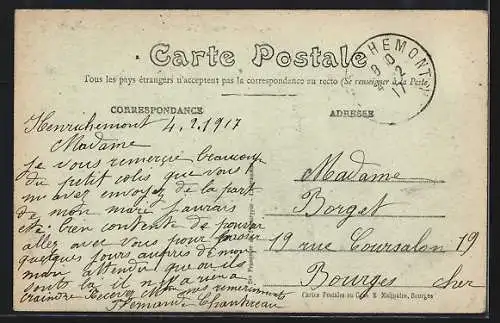 Carte Postale
Tous les pays étrangers n'acceptent pas la correspondance au recto (Se renseigner à la Poste)
HEMONT
8 10
4 2
17
CORRESPONDANCE
ADRESSE
Henrichemont 4.2.1917
Madame
Je vous remercie beaucoup
du petit colis que vous
m avez envoyez de la part
de mon mari j aurais
été bien content de pouvoir
allez avec vous pour passer
quelques jours auprès de mon
mari attendu que ou ils
sont la il n'y a rien a
craindre Recevez Mme mes remerciments
Chantereau
Madame
Borget
19 rue Coursalon 19
Bourges Cher
Cartes Postales en Gros E. Maquaire, Bourges